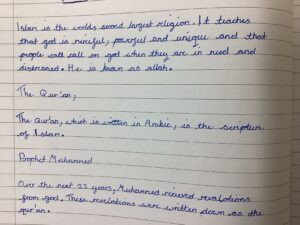 Islam is the worlds second largest religion. It teaches
that god is merciful, powerful and unique and that
people call call on god when they are in need and
distressed. He is known as allah.
The Qur'an,
The Qur'an, which is written in Arabic, is the scripture
of Islam.
Prophet Muhammed
Over the next 22 years, Muhammed recieved revelations
from god. These revelations were written down as the
qur'an.